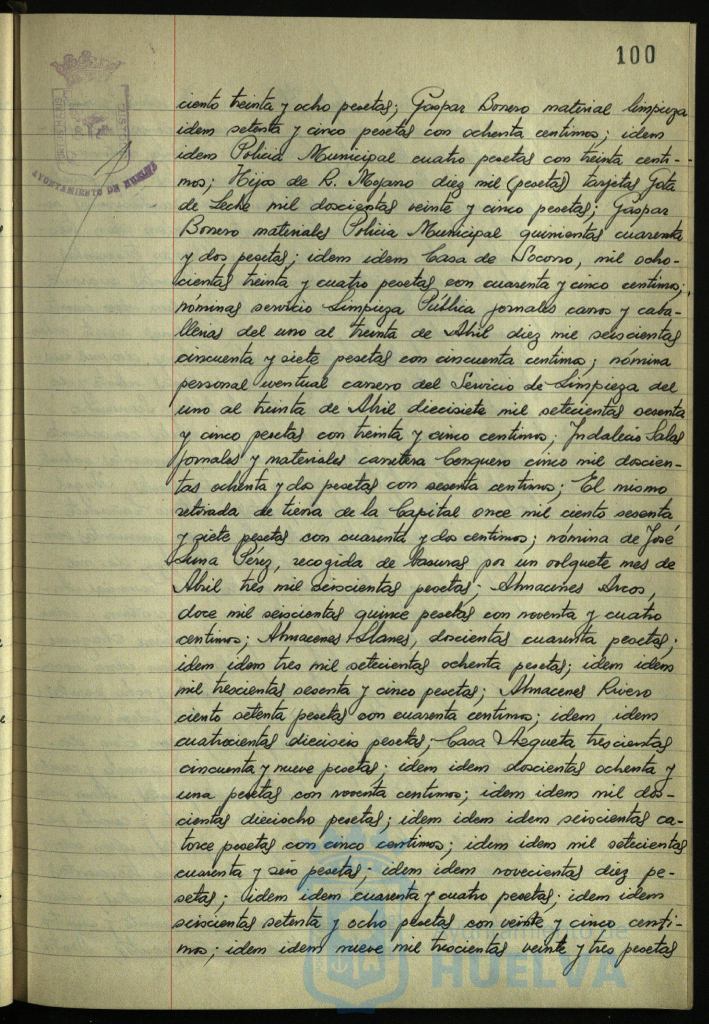 100
AYUNTAMIENTO DE HUELVA
ciento treinta y ocho pesetas; Gaspar Bonero material limpieza
idem setenta y cinco pesetas con ochenta centimos; idem
idem Policia Municipal cuatro pesetas con treinta centi-
mos; Hijos de R. Mojano diez mil (pesetas) tarjetas Gota
de Leche mil doscientas veinte y cinco pesetas; Gaspar
Bonero materiales Policia Municipal quinientas cuarenta
y dos pesetas; idem idem Casa de Socorro, mil ocho-
cientas treinta y cuatro pesetas con cuarenta y cinco centimos;
nóminas servicio Limpieza Pública jornales carros y caba-
llerias del uno al treinta de Abril diez mil seiscientas
cincuenta y siete pesetas con cincuenta centimos; nómina
personal eventual carrero del Servicio de Limpieza del
uno al treinta de Abril diecisiete mil setecientas sesenta
y cinco pesetas con treinta y cinco centimos; Indalecio Salas
jornales y materiales carretera Conquero cinco mil doscien-
tas ochenta y dos pesetas con sesenta centimos; El mismo
retirada de tierra de la Capital once mil ciento sesenta
y siete pesetas con cuarenta y dos centimos; nómina de José
Luna Pérez, recogida de basuras por un volquete mes de
Abril tres mil seiscientas pesetas; Almacenes Arcos,
doce mil seiscientas quince pesetas con noventa y cuatro
centimos; Almacenes Llanes, doscientas cuarenta pesetas;
idem idem tres mil setecientas ochenta pesetas; idem idem
mil trescientas sesenta y cinco pesetas; Almacenes Rivero
ciento setenta pesetas con cuarenta centimos; idem idem
cuatrocientas dieciseis pesetas; Casa Azqueta trescientas
cincuenta y nueve pesetas; idem idem doscientas ochenta y
una pesetas con noventa centimos; idem idem mil dos-
cientas dieciocho pesetas; idem idem idem seiscientas ca-
torce pesetas con cinco centimos; idem idem mil setecientas
cuarenta y seis pesetas; idem idem novecientas diez pe-
setas; idem idem cuarenta y cuatro pesetas; idem idem
seiscientas setenta y ocho pesetas con veinte y cinco centi-
mos; idem idem nueve mil trescientas veinte y tres pesetas
HUELVA